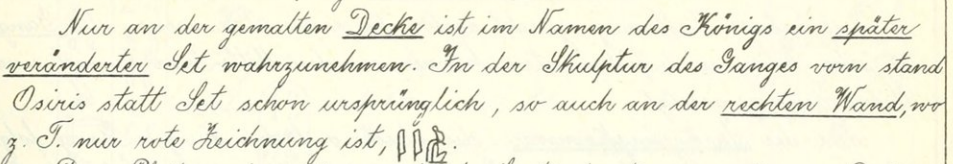 Nur an der gemalten Decke ist im Namen des Königs ein später
veränderter Set wahrzunehmen. In der Skulptur des Ganges vorn stand
Osiris statt Set schon ursprünglich, so auch an der rechten Wand, wo
z. T. nur rote Zeichnung ist,